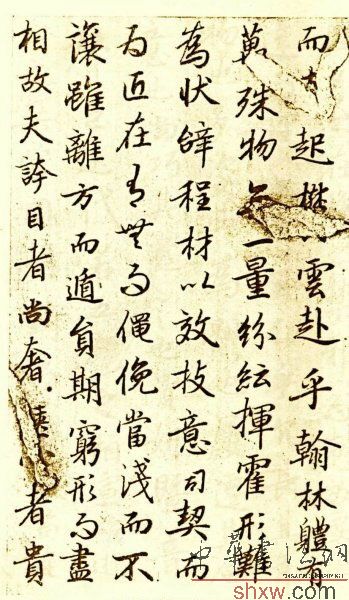 而起欝雲赴乎翰林體有
萬殊物無一量紛紜揮霍形難
為狀辭程材以效技意司契而
為匠在有無而僶俛當淺而不
讓雖離方而遁員期窮形而盡
相故夫誇目者尚奢者貴
中華書法网
shxw.com